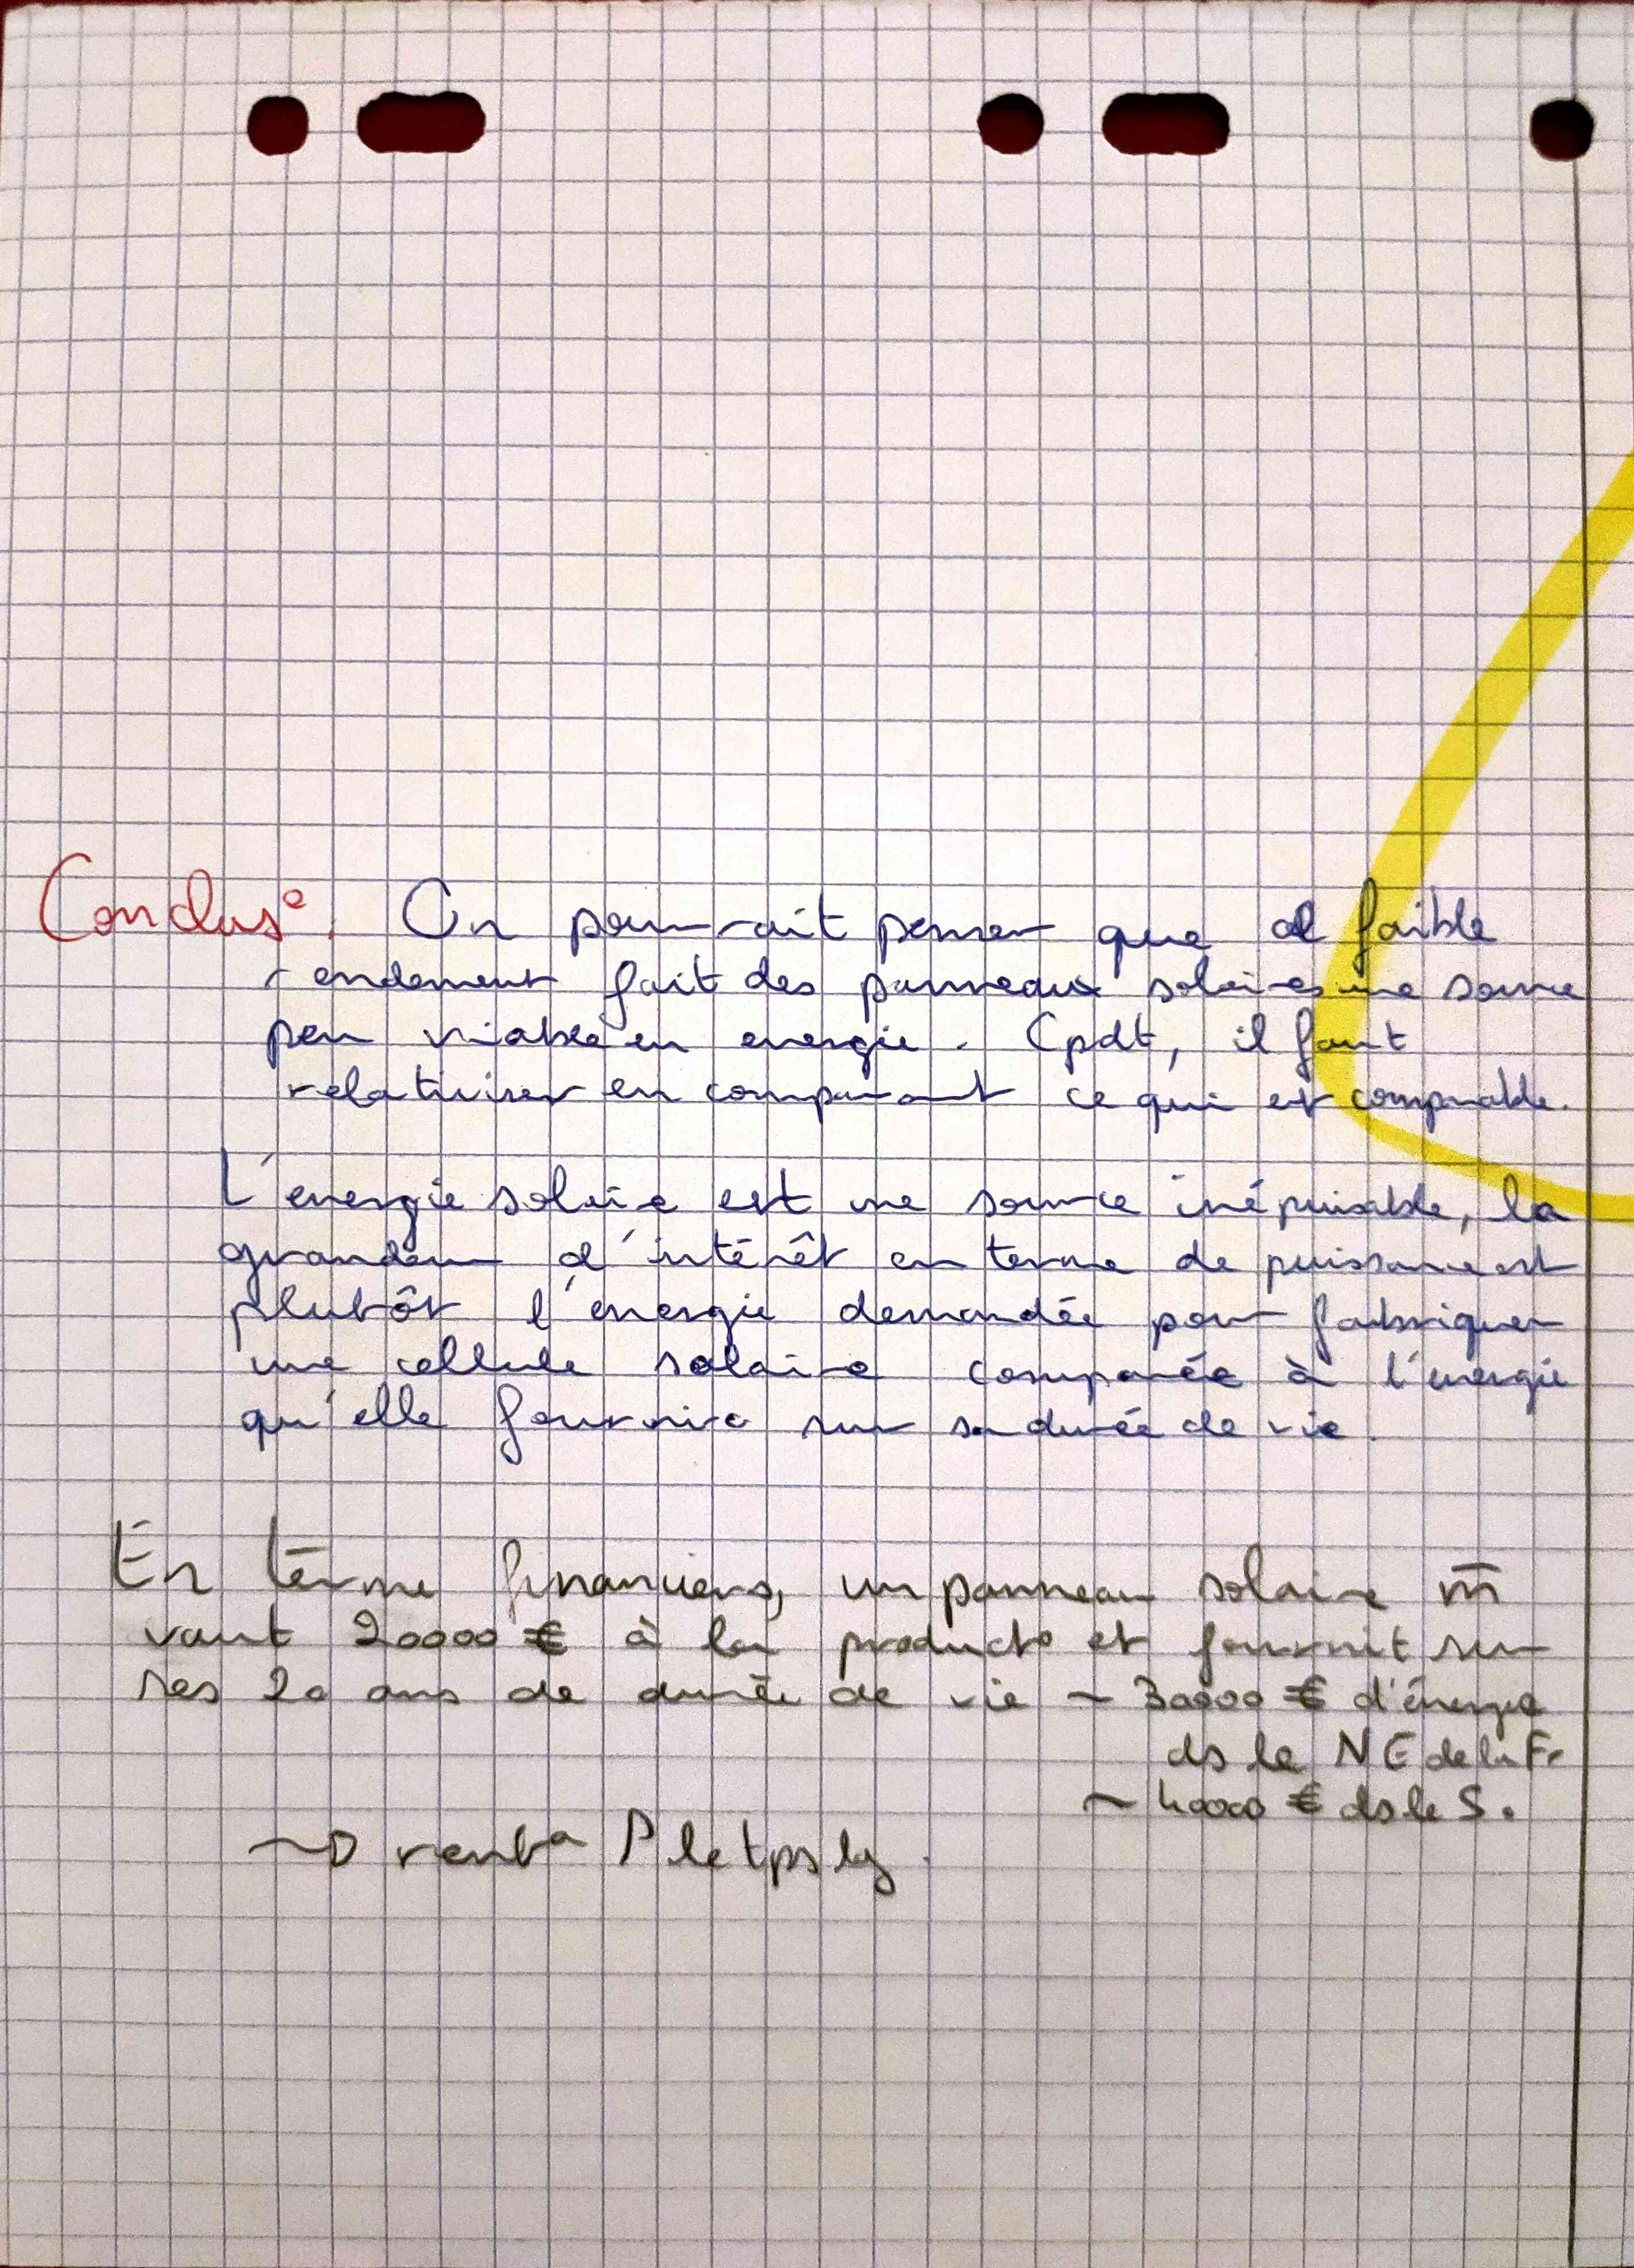 Conclus°. On pourrait penser que al faible
rendement fait des panneaux solaires une source
peu viable en energie. Cpdt, il faut
relativiser en comparant ce qui est comparable.
L'energie solaire est une source inépuisable, la
grandeur d'intérêt en terme de puissance est
plutôt l'énergie demandée pour fabriquer
une cellule solaire comparée à l'énergie
qu'elle fournira sur sa durée de vie.
En terme financiers, un panneau solaire m̄
vaut 20000 € à la product° et fournit sur
ses 20 ans de durée de vie ~ 30000 € d'énergie
ds le NE de la Fr
~ 40000 € ds le S.
~> rent le tps lg.